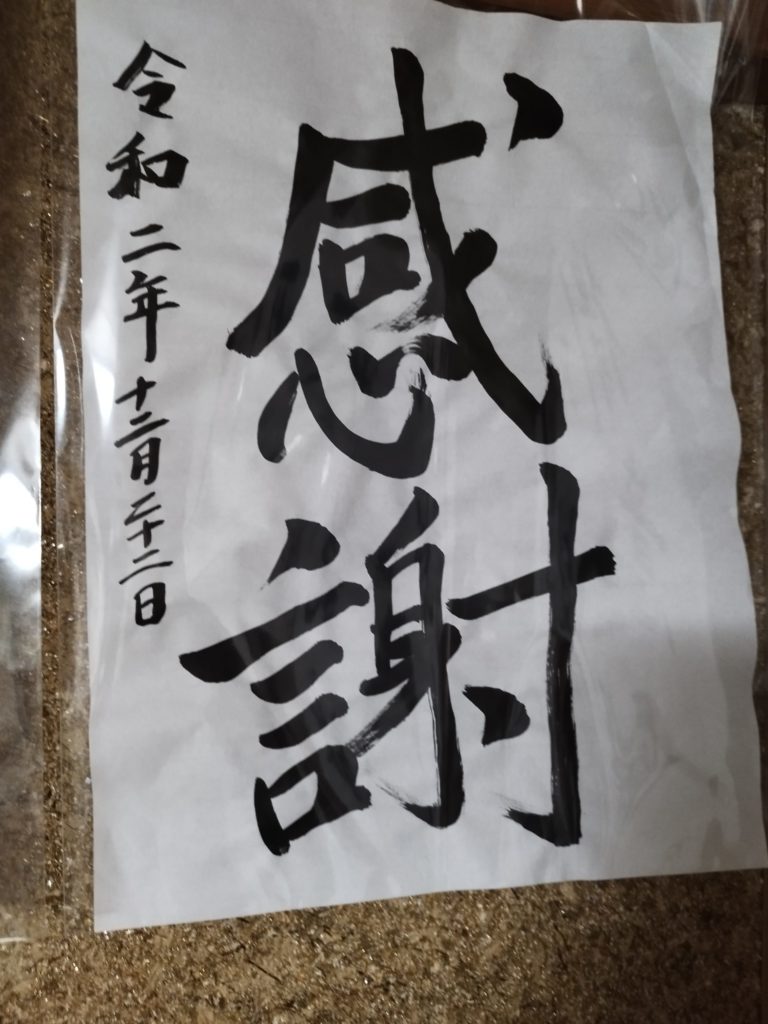 感謝
令和二年十二月二十二日